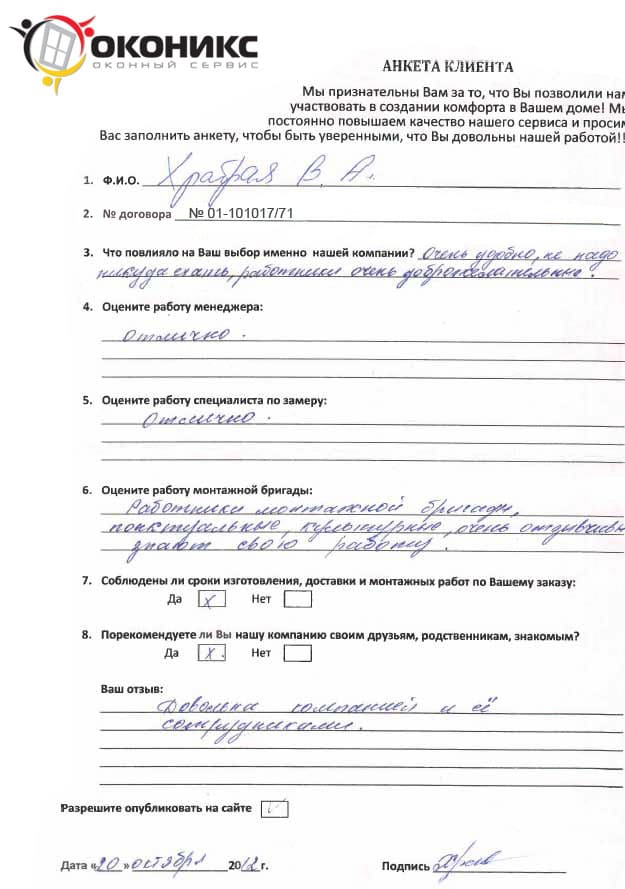 ОКОНИКС
ОКОННЫЙ СЕРВИС
АНКЕТА КЛИЕНТА
Мы признательны Вам за то, что Вы позволили нам
участвовать в создании комфорта в Вашем доме! Мы
постоянно повышаем качество нашего сервиса и просим
Вас заполнить анкету, чтобы быть уверенными, что Вы довольны нашей работой!!
1. Ф.И.О. Храбрая В. А.
2. № договора № 01-101017/71
3. Что повлияло на Ваш выбор именно нашей компании? Очень удобно, не надо
никуда ехать, работники очень доброжелательные.
4. Оцените работу менеджера:
отлично.
5. Оцените работу специалиста по замеру:
Отлично.
6. Оцените работу монтажной бригады:
Работники монтажной бригады,
понктуальные, культурные, очень отзывчивы
знают свою работу.
7. Соблюдены ли сроки изготовления, доставки и монтажных работ по Вашему заказу:
Да X Нет
8. Порекомендуете ли Вы нашу компанию своим друзьям, родственникам, знакомым?
Да X. Нет
Ваш отзыв:
Довольна компанией и её
сотрудниками.
Разрешите опубликовать на сайте V
Дата «20» октября 2012 г. Подпись